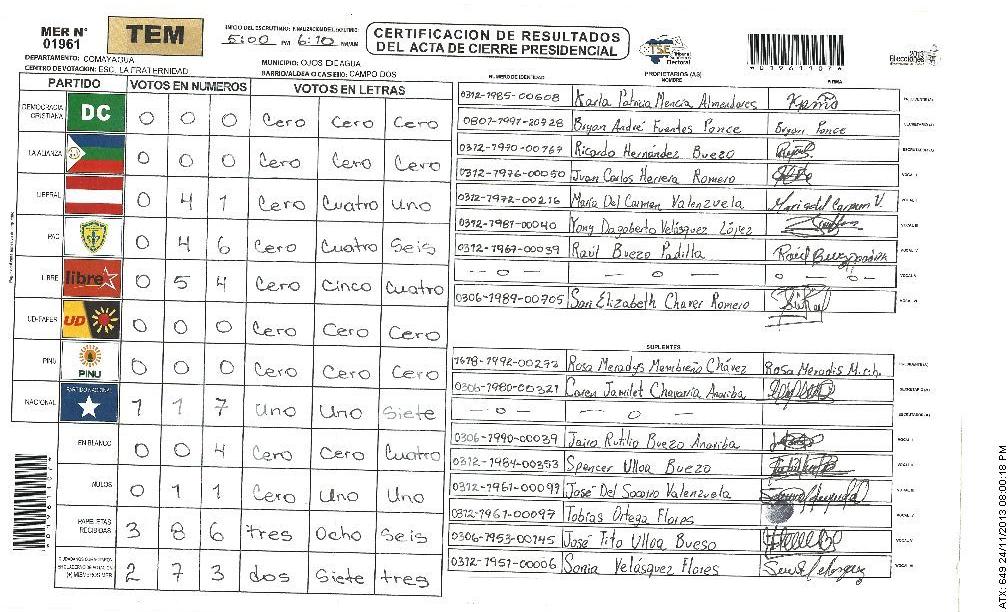 MER N° 01961
TEM
INICIO DEL ESCRUTINIO: FINALIZACION DEL ESCRUTINIO:
5:00 PM 6:10 PM/AM
CERTIFICACION DE RESULTADOS
DEL ACTA DE CIERRE PRESIDENCIAL
TSE Tribunal Supremo Electoral
Elecciones 2013
DEPARTAMENTO: COMAYAGUA
CENTRO DE VOTACION: ESC. LA FRATERNIDAD
MUNICIPIO: OJOS DE AGUA
BARRIO/ALDEA O CASERIO: CAMPO DOS
PARTIDO VOTOS EN NUMEROS VOTOS EN LETRAS
DEMOCRACIA CRISTIANA DC 0 0 0 Cero Cero Cero
LA ALIANZA 0 0 0 Cero Cero Cero
LIBERAL 0 4 1 Cero Cuatro Uno
PAC 0 4 6 Cero Cuatro Seis
LIBRE libre 0 5 4 Cero Cinco Cuatro
UD-FAPER UD 0 0 0 Cero Cero Cero
PINU PINU 0 0 0 Cero Cero Cero
NACIONAL PARTIDO NACIONAL 1 1 7 Uno Uno Siete
EN BLANCO 0 0 4 Cero Cero Cuatro
NULOS 0 1 1 Cero Uno Uno
PAPELETAS RECIBIDAS 3 8 6 tres Ocho Seis
2 7 3 dos Siete tres
NUMERO DE IDENTIDAD PROPIETARIOS (AS) NOMBRE FIRMA
0312-1985-00608 Karla Patricia Mencia Almendares PRESIDENTE (A)
0801-1991-20728 Bryan André Fuentes Ponce Bryan Ponce SECRETARIO (A)
0312-1970-00767 Ricardo Hernández Buezo ESCRUTADOR (A)
0312-1976-00050 Juan Carlos Herrera Romero VOCAL I
0312-1972-00216 María Del Carmen Valenzuela Maria del Carmen V. VOCAL II
0312-1981-00040 Yony Dagoberto Velásquez López VOCAL III
0312-1967-00039 Raúl Buezo Padilla Raúl Buezo Padilla VOCAL IV
- - 0 - 0 - 0 - 0 VOCAL V
0306-1989-00705 Sari Elizabeth Chaver Romero VOCAL VI
SUPLENTES
1618-1992-00273 Rosa Meradys Membreño Chávez Rosa Meradis M.ch. PRESIDENTE (A)
0306-1980-00321 Caren Jamilet Chavarría Anariba SECRETARIO (A)
- 0 - - 0 - ESCRUTADOR (A)
0306-1990-00039 Jairo Rutilio Buezo Anariba VOCAL I
0312-1984-00353 Spencer Ulloa Buezo VOCAL II
0312-1961-00099 José Del Socorro Valenzuela VOCAL III
0312-1961-00097 Tobias Ortega Flores VOCAL IV
0306-1953-00145 José Tito Ulloa Bueso VOCAL V
0312-1951-00006 Sonia Velásquez Flores VOCAL VI
ATX: 649 24/11/2013 08:00:18 PM